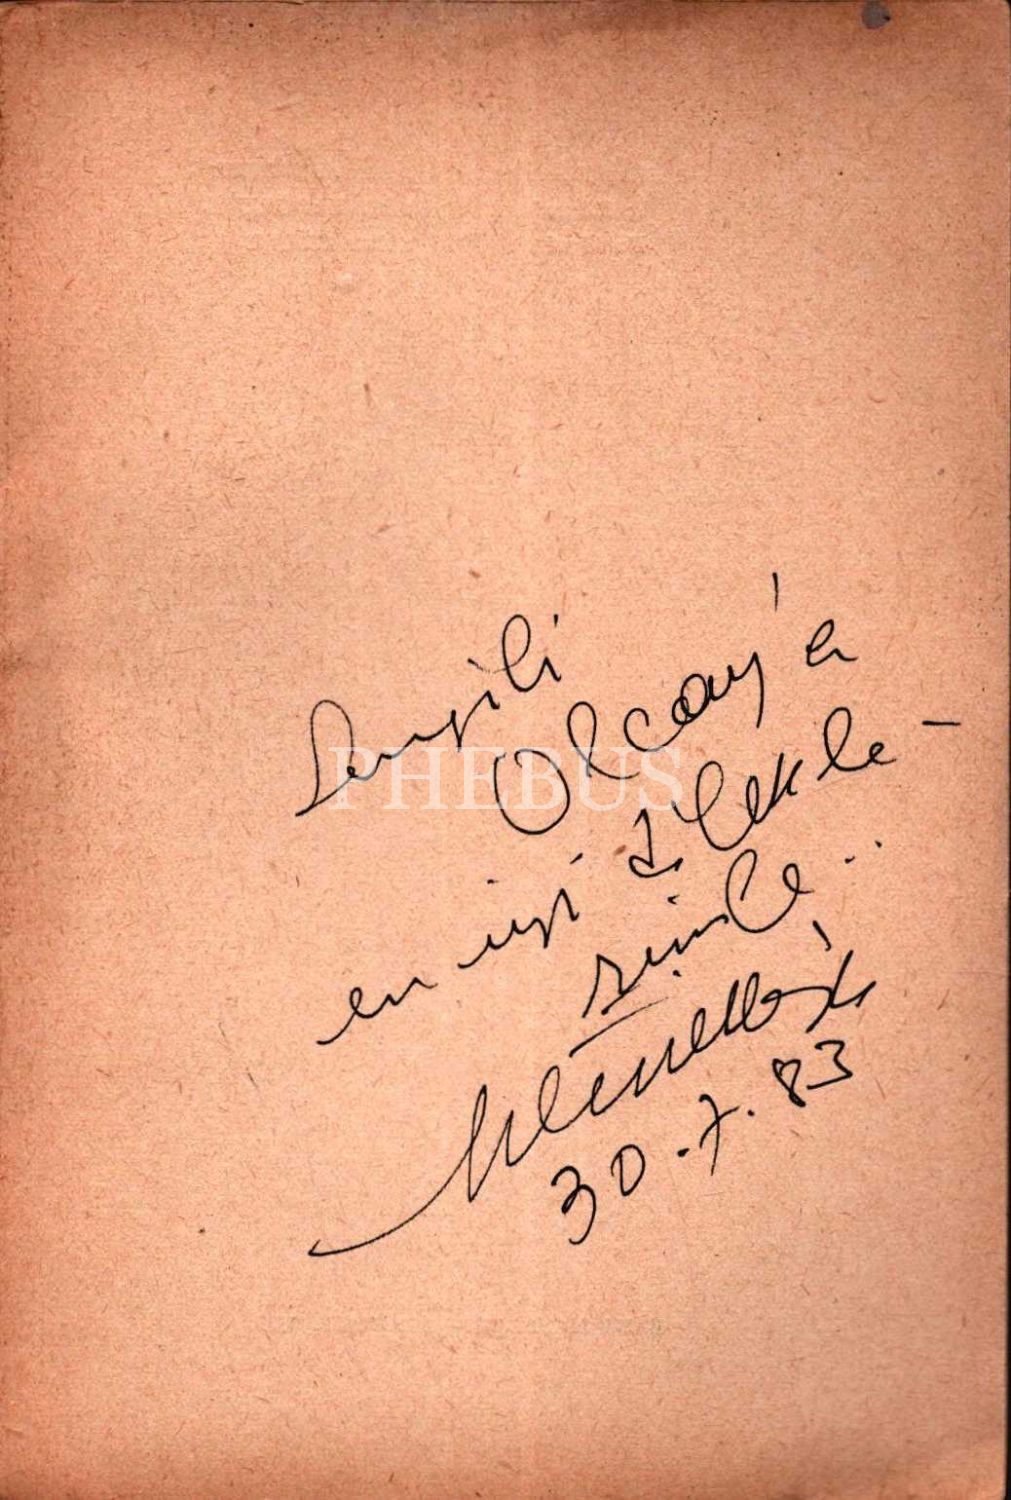 Sevgili
Olcay'a
en iyi dilekle-
rimle..
30.7.83
PHEBUS